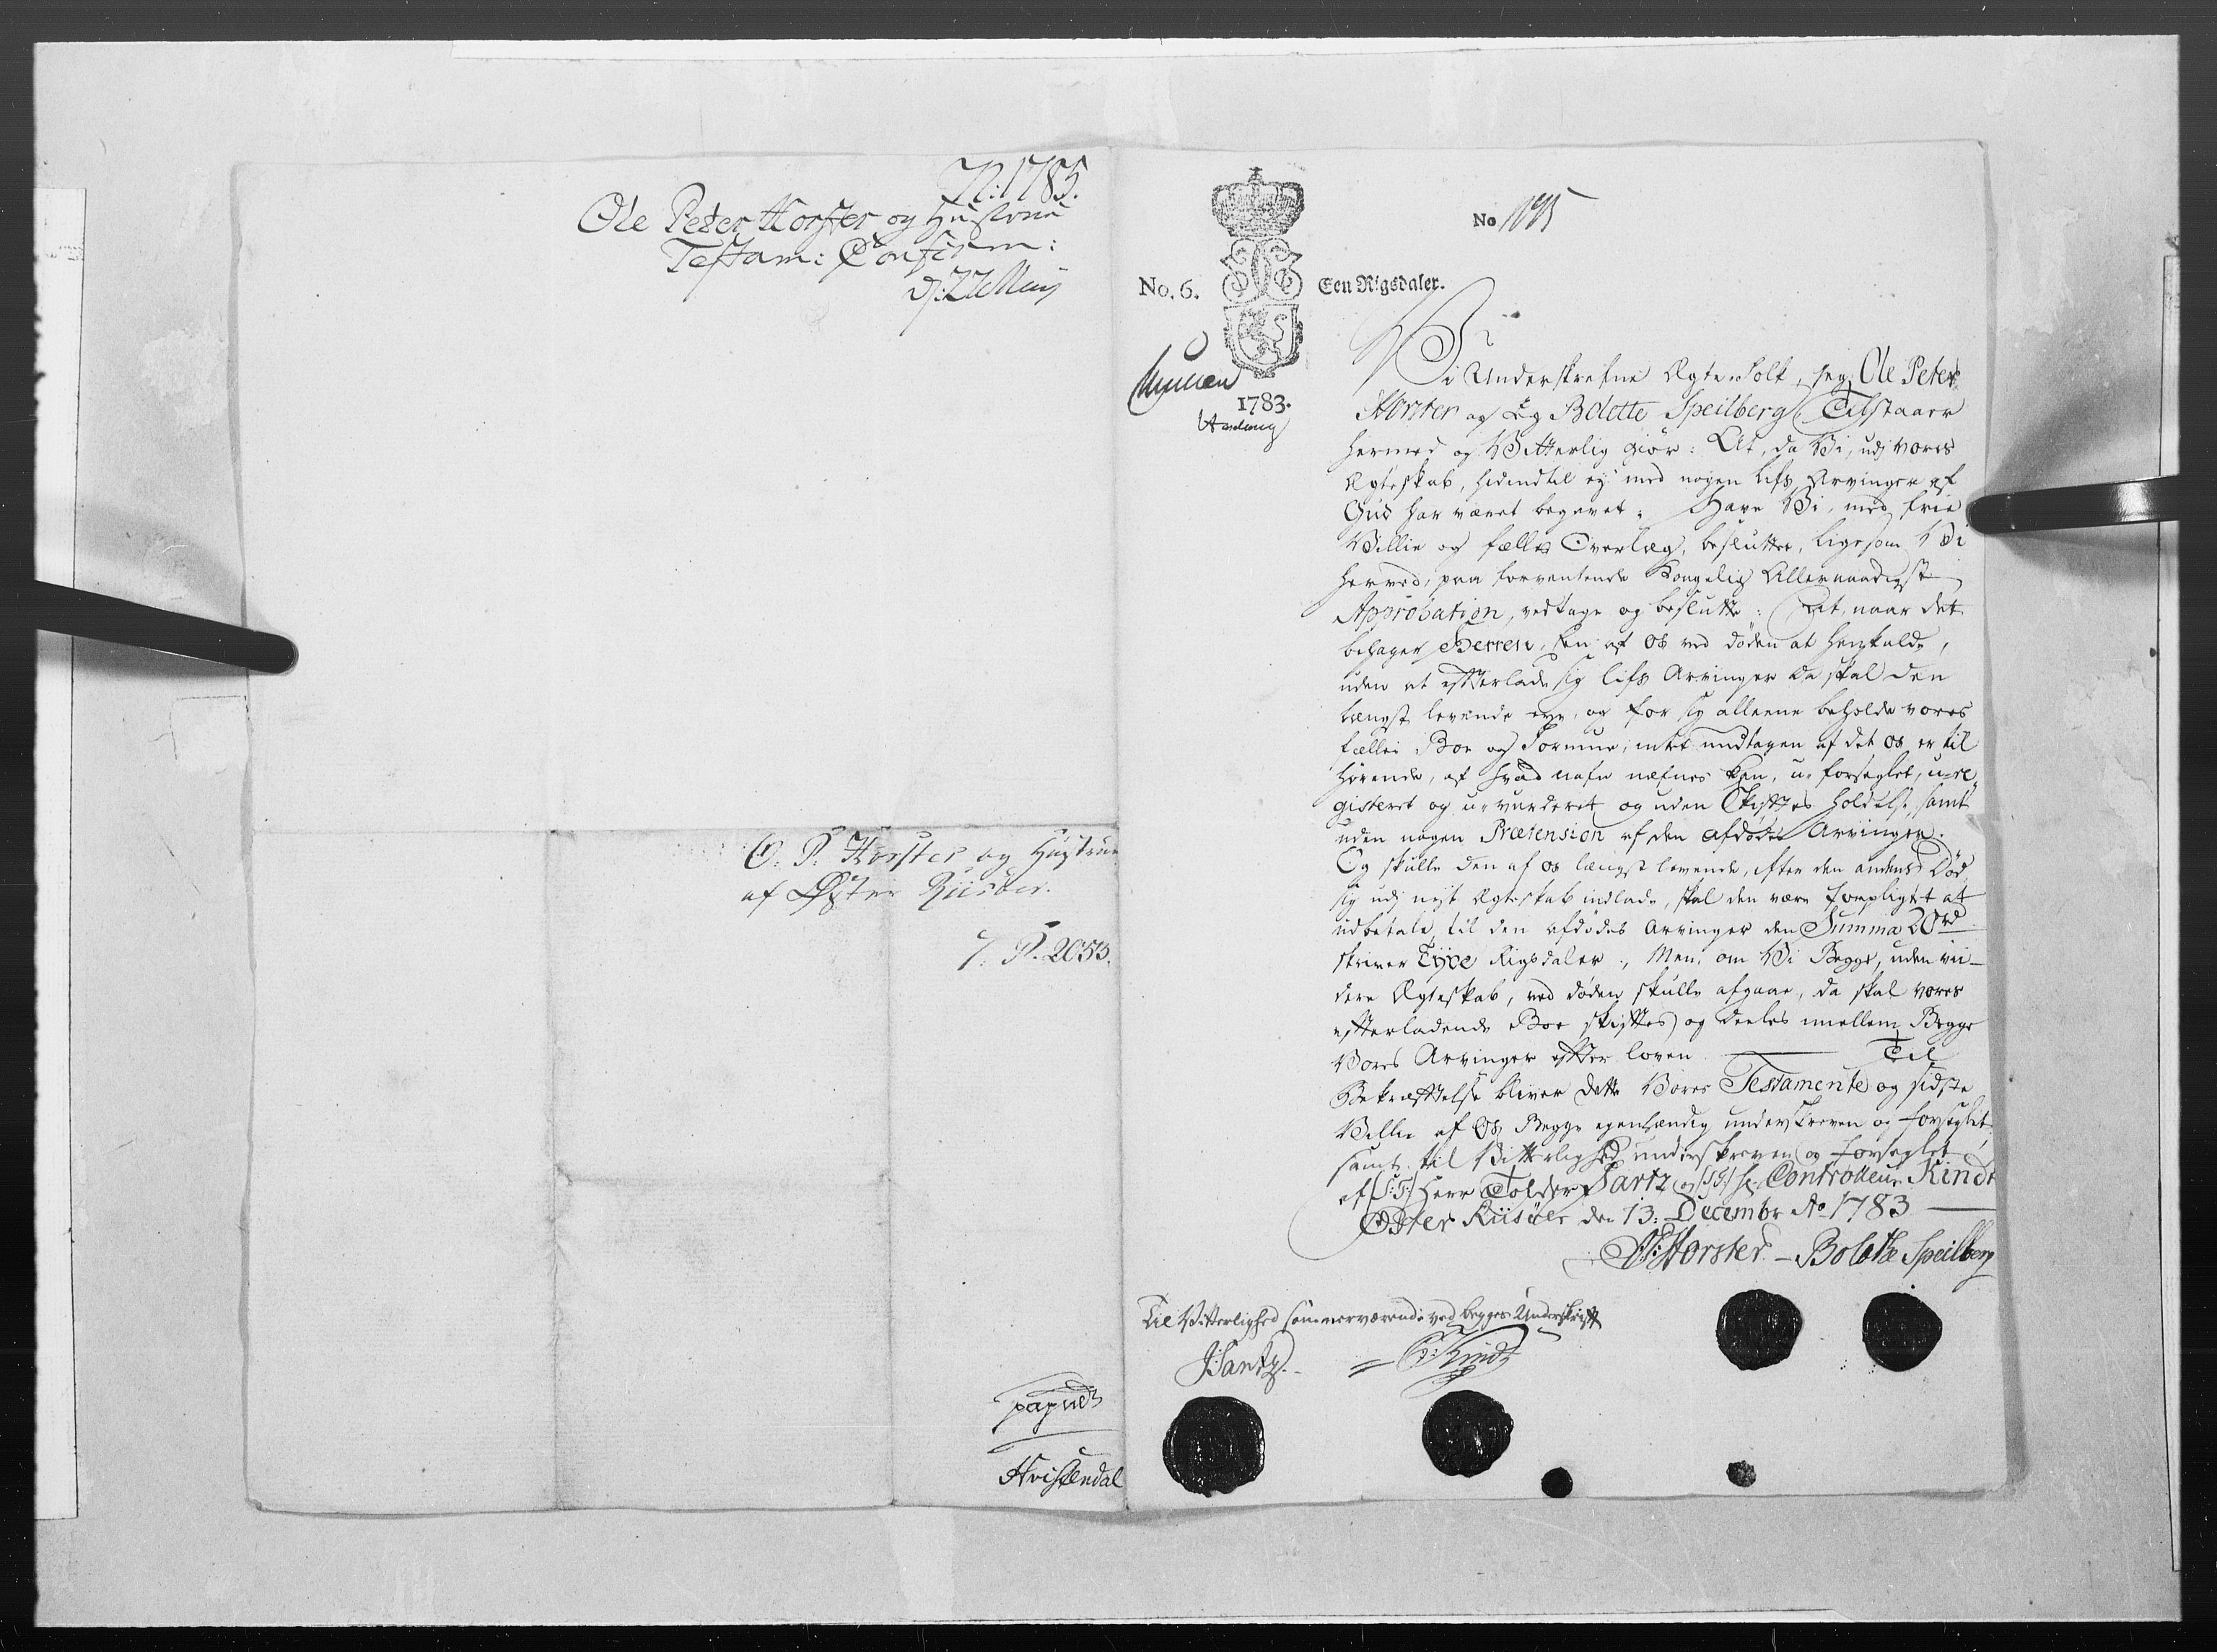 N: 1785.
Ole Peter Horster og Hustrue
Testam: Confirm:
d: 27 May
O. P. Horster og Hustrue
af Øster Riisöer.
7. P. 2053.
Hvistendal
No 1095
No. 6. Een Rigsdaler.
1783.
Vi Underskrefne Ægte-Folk, jeg Ole Peter
Horster og Eg Bolette Speilberg Tilstaaer
hermed og Vitterlig giör: At, da Vi, udj vores
Ægteskab, hidindtil ej med nogen Lifs Arvinger af
Gud har været begavet; Have Vi, med frie
Villie og fælles Overlæg, besluttet, ligesom Vi
herved, paa forventende Kongelig Allernaadigst
Approbation, vedtage og beslutte: At, naar det
behager Herren, Een af os ved döden at henkalde,
uden at efterlade sig lifs Arvinger da skal den
længst levende eye, og for sig alleene beholde vores
fælles Boe og Formue, intet undtagen af det os er til
hörende, af hvad nafn nefnes kan, u-forseglet, u-re
gisteret og u-vurderet og uden Skiftes holdelse, samt
uden nogen Prætension af den afdödes Arvinger.
Og skulle den af os længst levende, efter den andens Död
sig udj nyt Ægteskab indlade, skal den være forpligtet at
udbetale til den afdödes Arvinger den Summa 20 rd
skriver Tyve Rigsdaler., Men, om Vi Begge, uden vii-
dere Ægteskab, ved döden skulle afgaae, da skal vores
efterladende Boe skiftes og deeles imellem Begge
Vores Arvinger efter loven. Til
Bekræftelse bliver dette Vores Testamente og sidste
Villie af Os Begge egenhændig underskreven og forseglet,
samt til Vitterlighed underskreven og forseglet
af /S:T:/ Herr Tolder Sartz og /S:T:/ Hr. Controlleur Kindt
Øster Riisöer den 13: Decembr Ao 1783
OP: Horster. - Bolethe Speilberg
Til Vitterlighed som nærværende ved begges Underskrift
J Sartz. C: Kindt